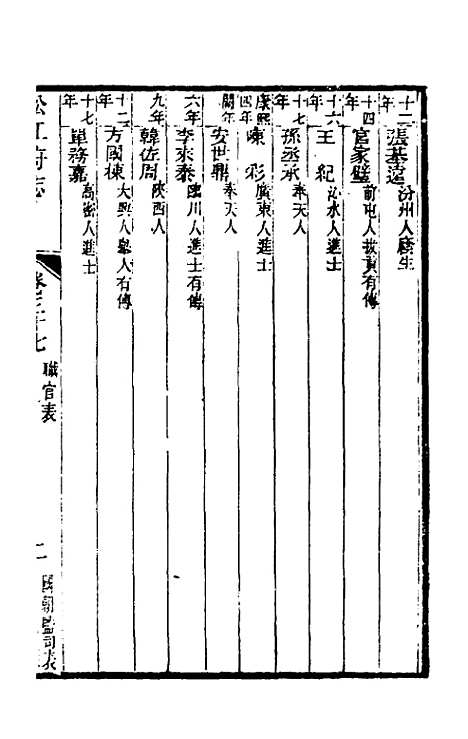 十二年 張基遠 汾州人廩生
十四年 官家璧 前屯人拔貢有傳
十六年 王紀 沁水人進士
十七年 孫丕承 奉天人
康熙四年 陳彩 廣東人進士
閏年 安世鼎 奉天人
六年 李來泰 臨川人進士有傳
九年 韓佐周 陝西人
十二年 方國棟 大興人舉人有傳
十七年 單務嘉 高密人進士
松江府志
卷三十七 職官表
二 國朝監司表